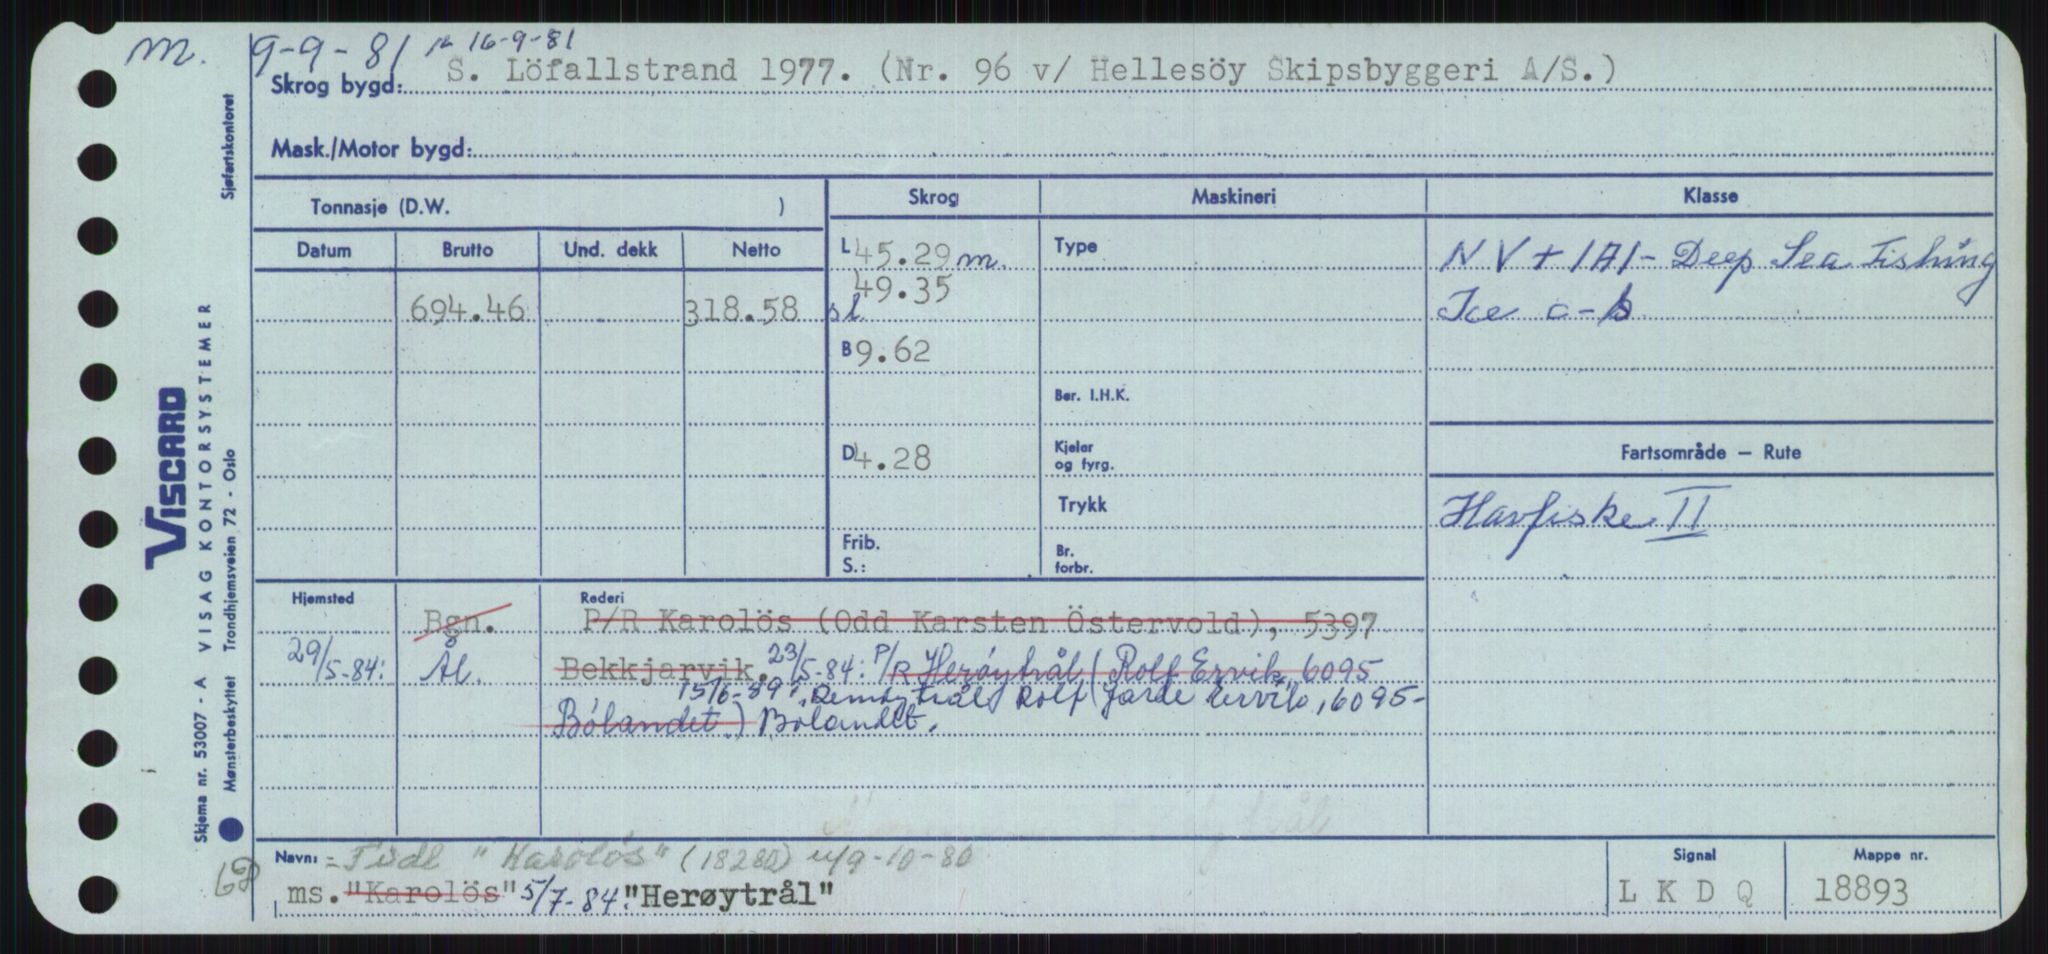 m. 9-9-81 16-9-81
Skrog bygd: S. Löfallstrand 1977. (Nr. 96 v/ Hellesöy Skipsbyggeri A/S.)
Mask./Motor bygd:
Tonnasje (D.W. )
Skrog Maskineri Klasse
Datum Brutto Und. dekk Netto
L 45.29 m. Type NV + 1A1 - Deep Sea Fishing
49.35
694.46 318.58 sl Ice C
B 9.62
Ber. I.H.K.
D 4.28 Kjeler og fyrg. Fartsområde — Rute
Trykk Havfiske II
Frib.
S.: Br. forbr.
Hjemsted Rederi
Bgn. P/R Karolös (Odd Karsten Östervold), 5397
29/5-84: Ål. Bekkjarvik. 23/5-84: P/R Herøytrål (Rolf Ervik, 6095
15/6-89: Rolf Jarle Ervik, 6095-
Bölandet.) Bölandet.
Navn: = Tidl "Karolös" (18280) 9-10-80
ms. "Karolös" 5/7-84. "Herøytrål"
Signal Mappe nr.
L K D Q 18893
VISCARD
Skjema nr. 53007 - A VISAG KONTORSYSTEMER
Mønsterbeskyttet Trondhjemsveien 72 - Oslo
Sjøfartskontoret